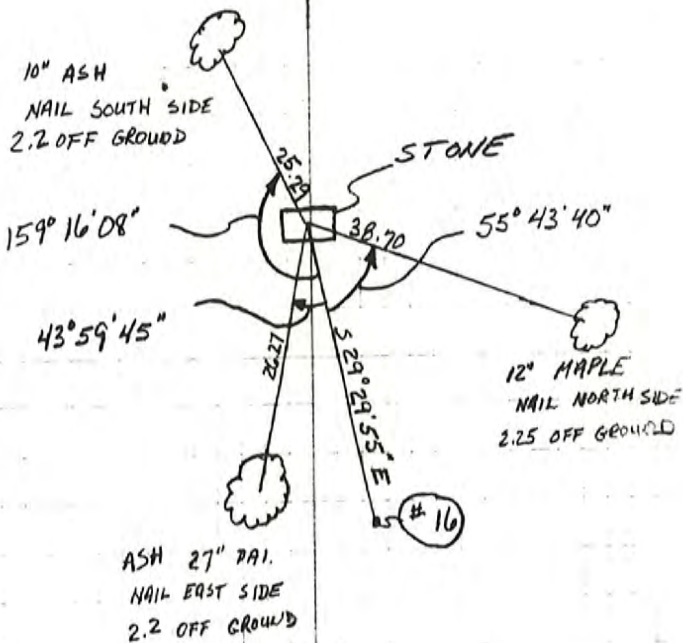 10" ASH
NAIL SOUTH SIDE
2.2 OFF GROUND
25.29
STONE
159° 16' 08"
38.70
55° 43' 40"
43° 59' 45"
26.27
S 29° 29' 55" E
12" MAPLE
NAIL NORTH SIDE
2.25 OFF GROUND
# 16
ASH 27" DAI.
NAIL EAST SIDE
2.2 OFF GROUND